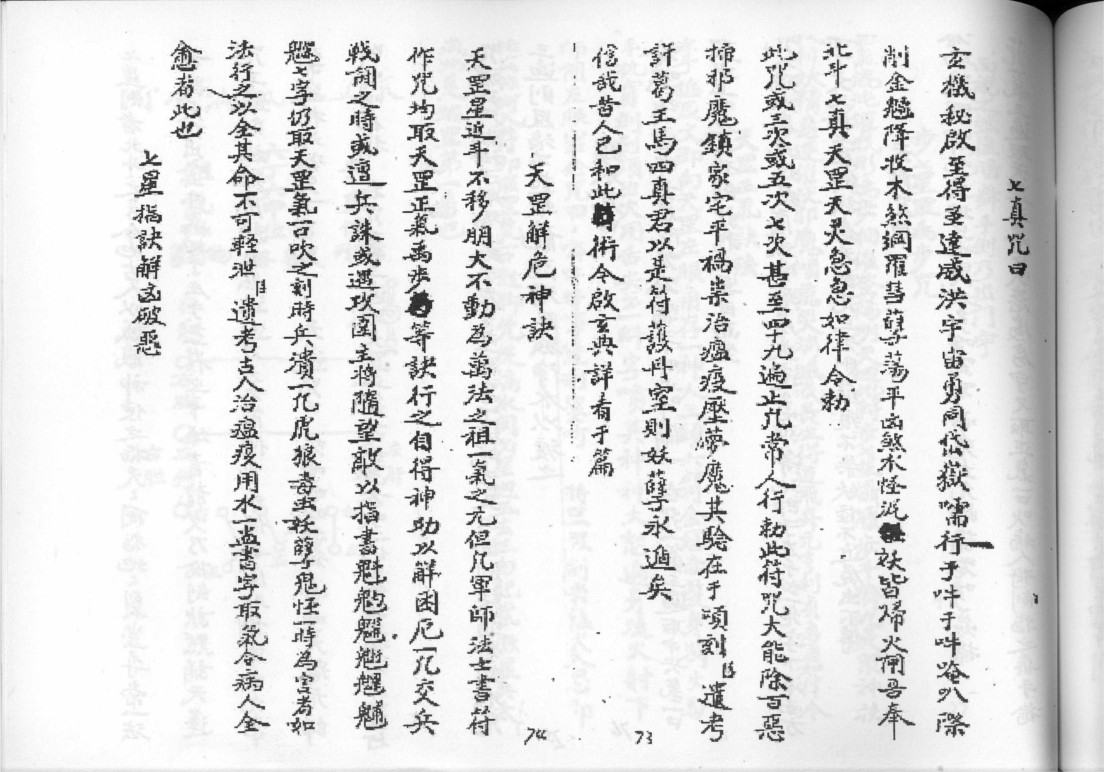 七真咒曰
玄機秘啟至得至達威洪宇宙勇同岱嶽嚅行于吽于吽唵㕣際
削金魑降收木煞綱羅彗孽蕩平凶煞水怪泯妖皆歸火閘吾奉
北斗七真天罡天灵急急如律令勅
此咒或三次或五次七次甚至四十九遍止凡常人行勅此符咒大能除百惡
掃邪魔鎮家宅平禍祟治瘟疫壓夢魔其驗在于頃刻 遺考
許葛王馬四真君以是符護丹室則妖孽永遁矣
信哉昔人已和此術今啟玄典詳看于篇
73
天罡解危神訣
天罡星近斗不移朋大不動為萬法之祖一氣之元但凡軍師法士書符
作咒均取天罡正氣禹步等訣行之自得神功以解困厄一凡交兵
戦鬪之時或遭兵誅或遇攻圍主将隨望敵以指書魁𩲃
魒七字仍取天罡氣一口吹之刻時兵潰一凡虎狼毒虫妖孽鬼怪一時為害者如
法行之以全其命不可輕泄 遺考古人治瘟疫用水一盅書字取氣令病人全
愈者此也
七星指訣解凶破惡
74